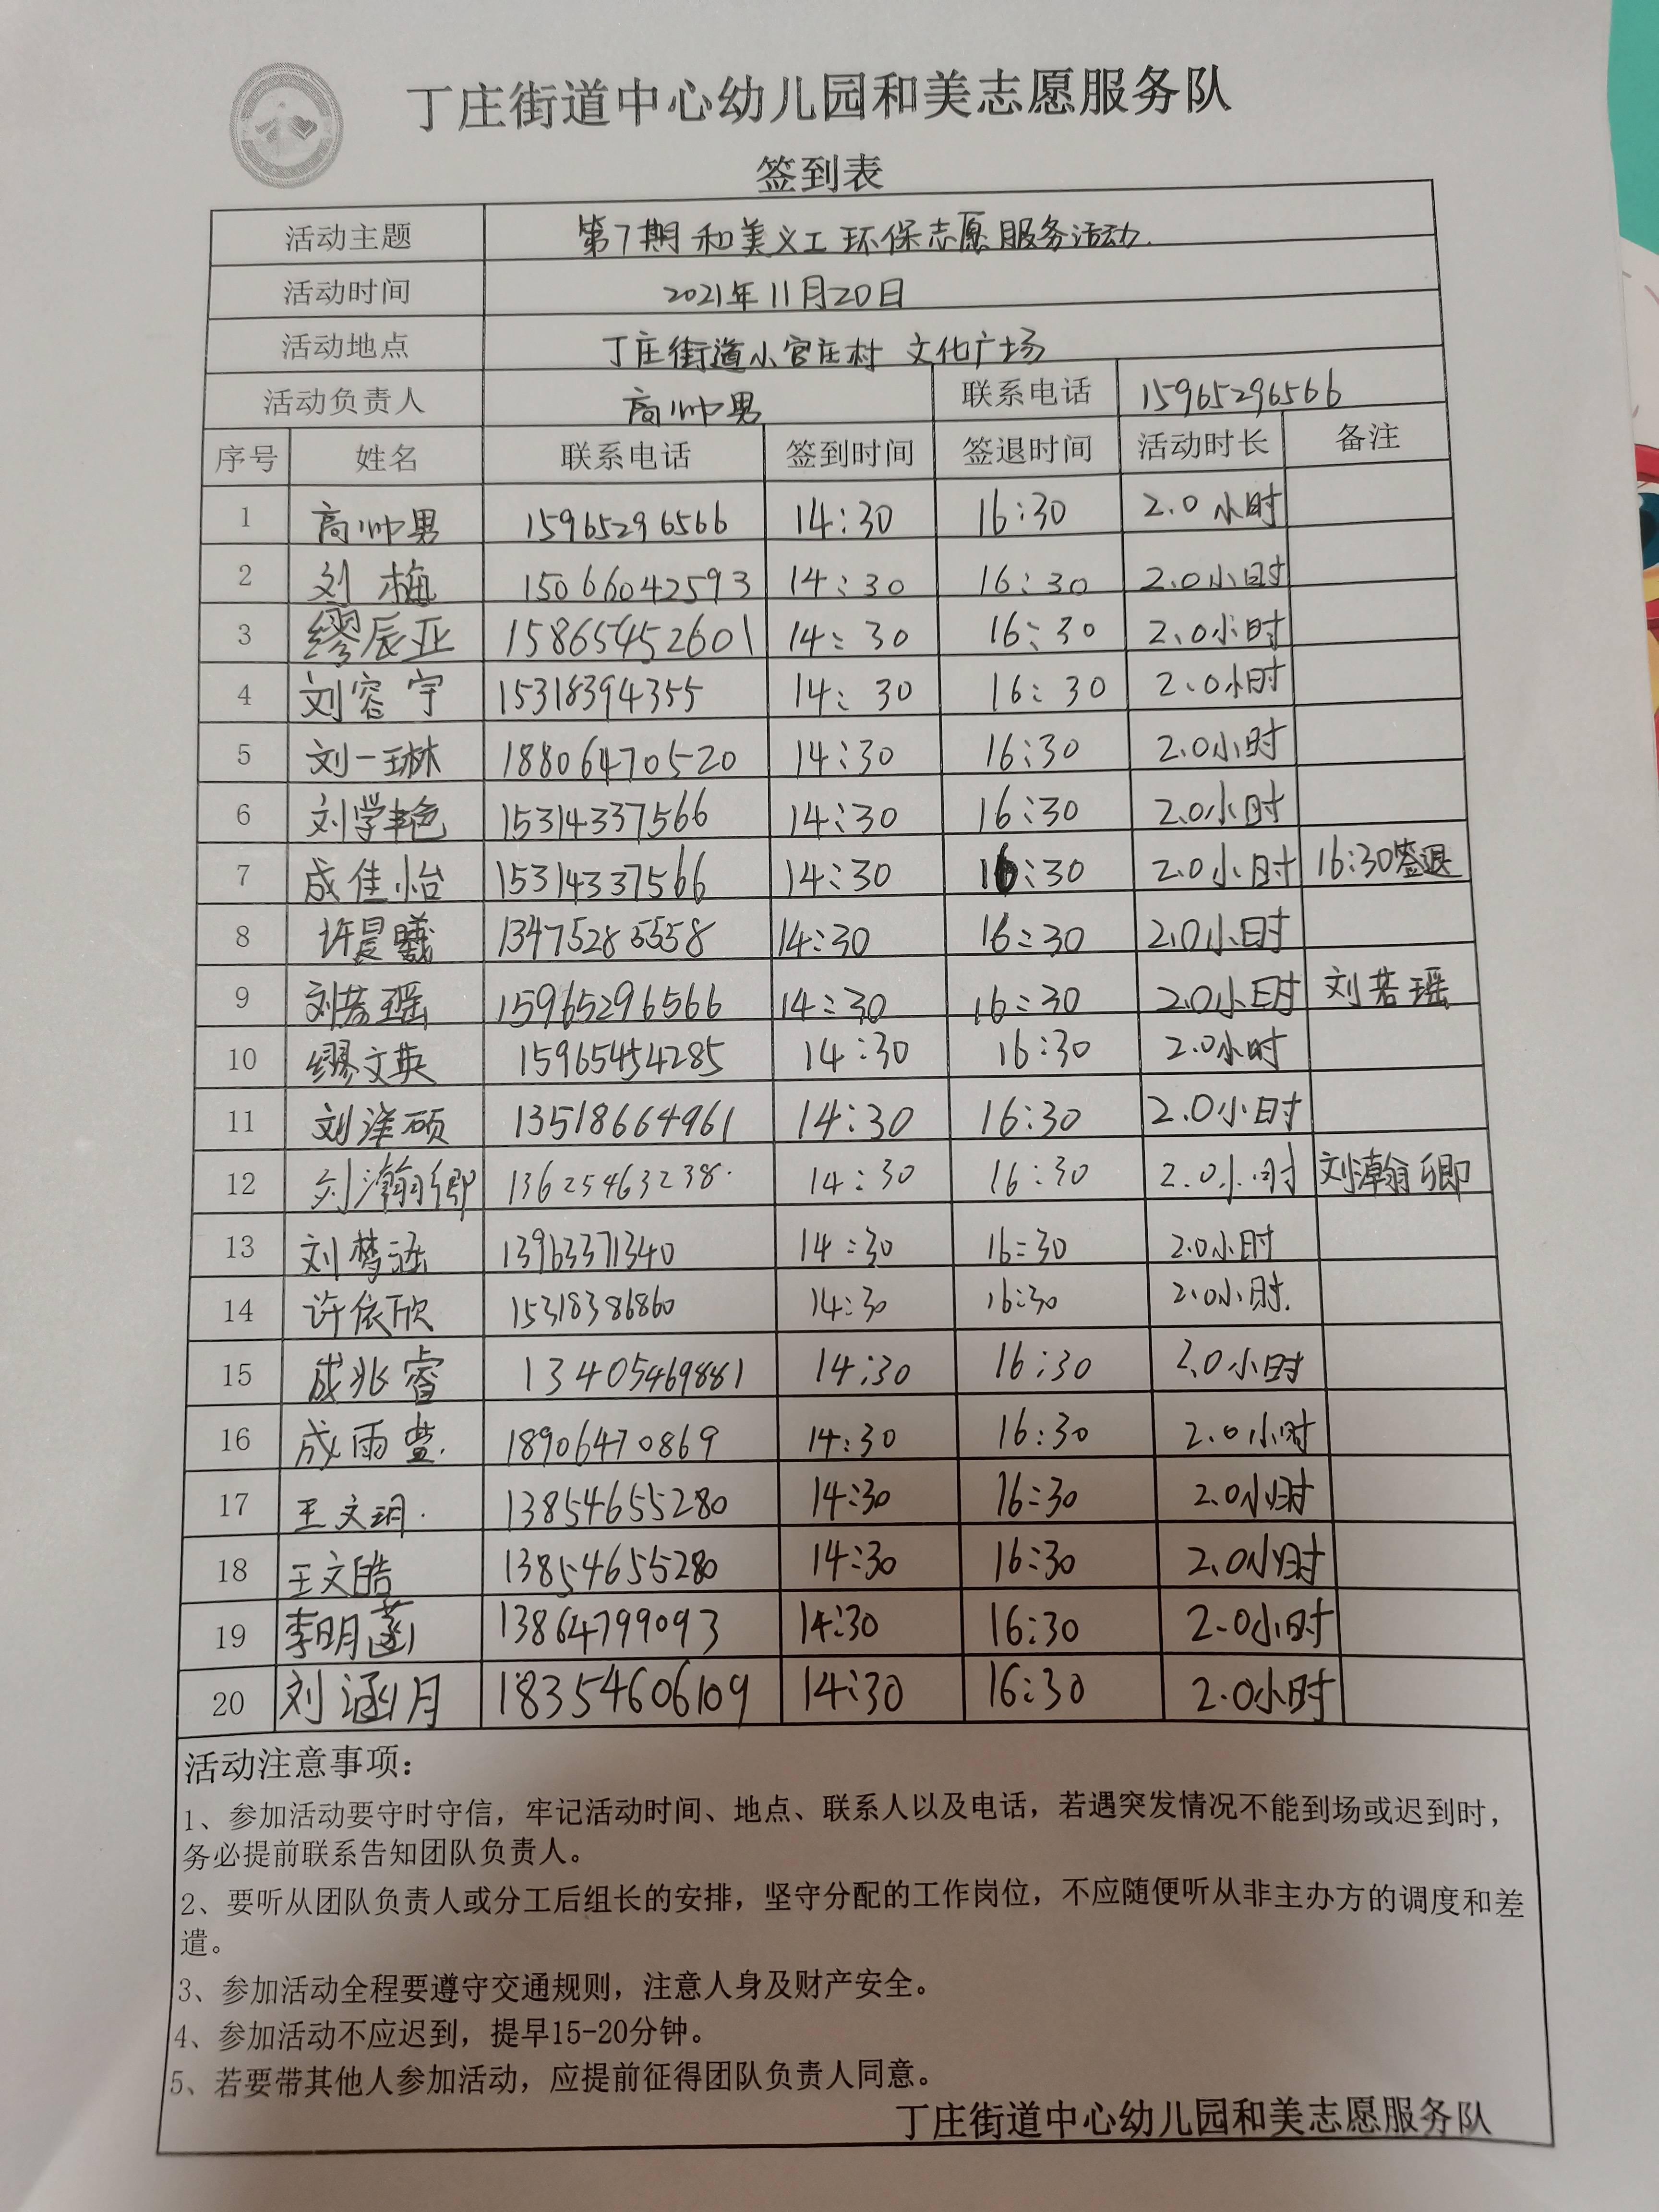 丁庄街道中心幼儿园和美志愿服务队
签到表
活动主题 第7期和美义工环保志愿服务活动.
活动时间 2021年11月20日
活动地点 丁庄街道小官庄村 文化广场
活动负责人 高帅男 联系电话 15965296566
序号 姓名 联系电话 签到时间 签退时间 活动时长 备注
1 高帅男 15965296566 14:30 16:30 2.0小时
2 刘梅 15066042593 14:30 16:30 2.0小时
3 缪辰亚 15865452601 14:30 16:30 2.0小时
4 刘容宇 15318394355 14:30 16:30 2.0小时
5 刘一琳 18806470520 14:30 16:30 2.0小时
6 刘学艳 15314337566 14:30 16:30 2.0小时
7 成佳怡 15314337566 14:30 16:30 2.0小时 16:30签退
8 许晨曦 13475285558 14:30 16:30 2.0小时
9 刘若瑶 15965296566 14:30 16:30 2.0小时 刘若瑶
10 缪文英 15965454285 14:30 16:30 2.0小时
11 刘泽硕 13518664961 14:30 16:30 2.0小时
12 刘瀚卿 13625463238 14:30 16:30 2.0小时 刘瀚卿
13 刘梦涵 13963371340 14:30 16:30 2.0小时
14 许依欣 15318386860 14:30 16:30 2.0小时.
15 成兆睿 13405469881 14:30 16:30 2.0小时
16 成雨萱. 18906470869 14:30 16:30 2.0小时
17 王文玥. 13854655280 14:30 16:30 2.0小时
18 王文皓 13854655280 14:30 16:30 2.0小时
19 李明 13864799093 14:30 16:30 2.0小时
20 刘涵月 18354606109 14:30 16:30 2.0小时
活动注意事项：
1、参加活动要守时守信，牢记活动时间、地点、联系人以及电话，若遇突发情况不能到场或迟到时，
务必提前联系告知团队负责人。
2、要听从团队负责人或分工后组长的安排，坚守分配的工作岗位，不应随便听从非主办方的调度和差
遣。
3、参加活动全程要遵守交通规则，注意人身及财产安全。
4、参加活动不应迟到，提早15-20分钟。
5、若要带其他人参加活动，应提前征得团队负责人同意。
丁庄街道中心幼儿园和美志愿服务队